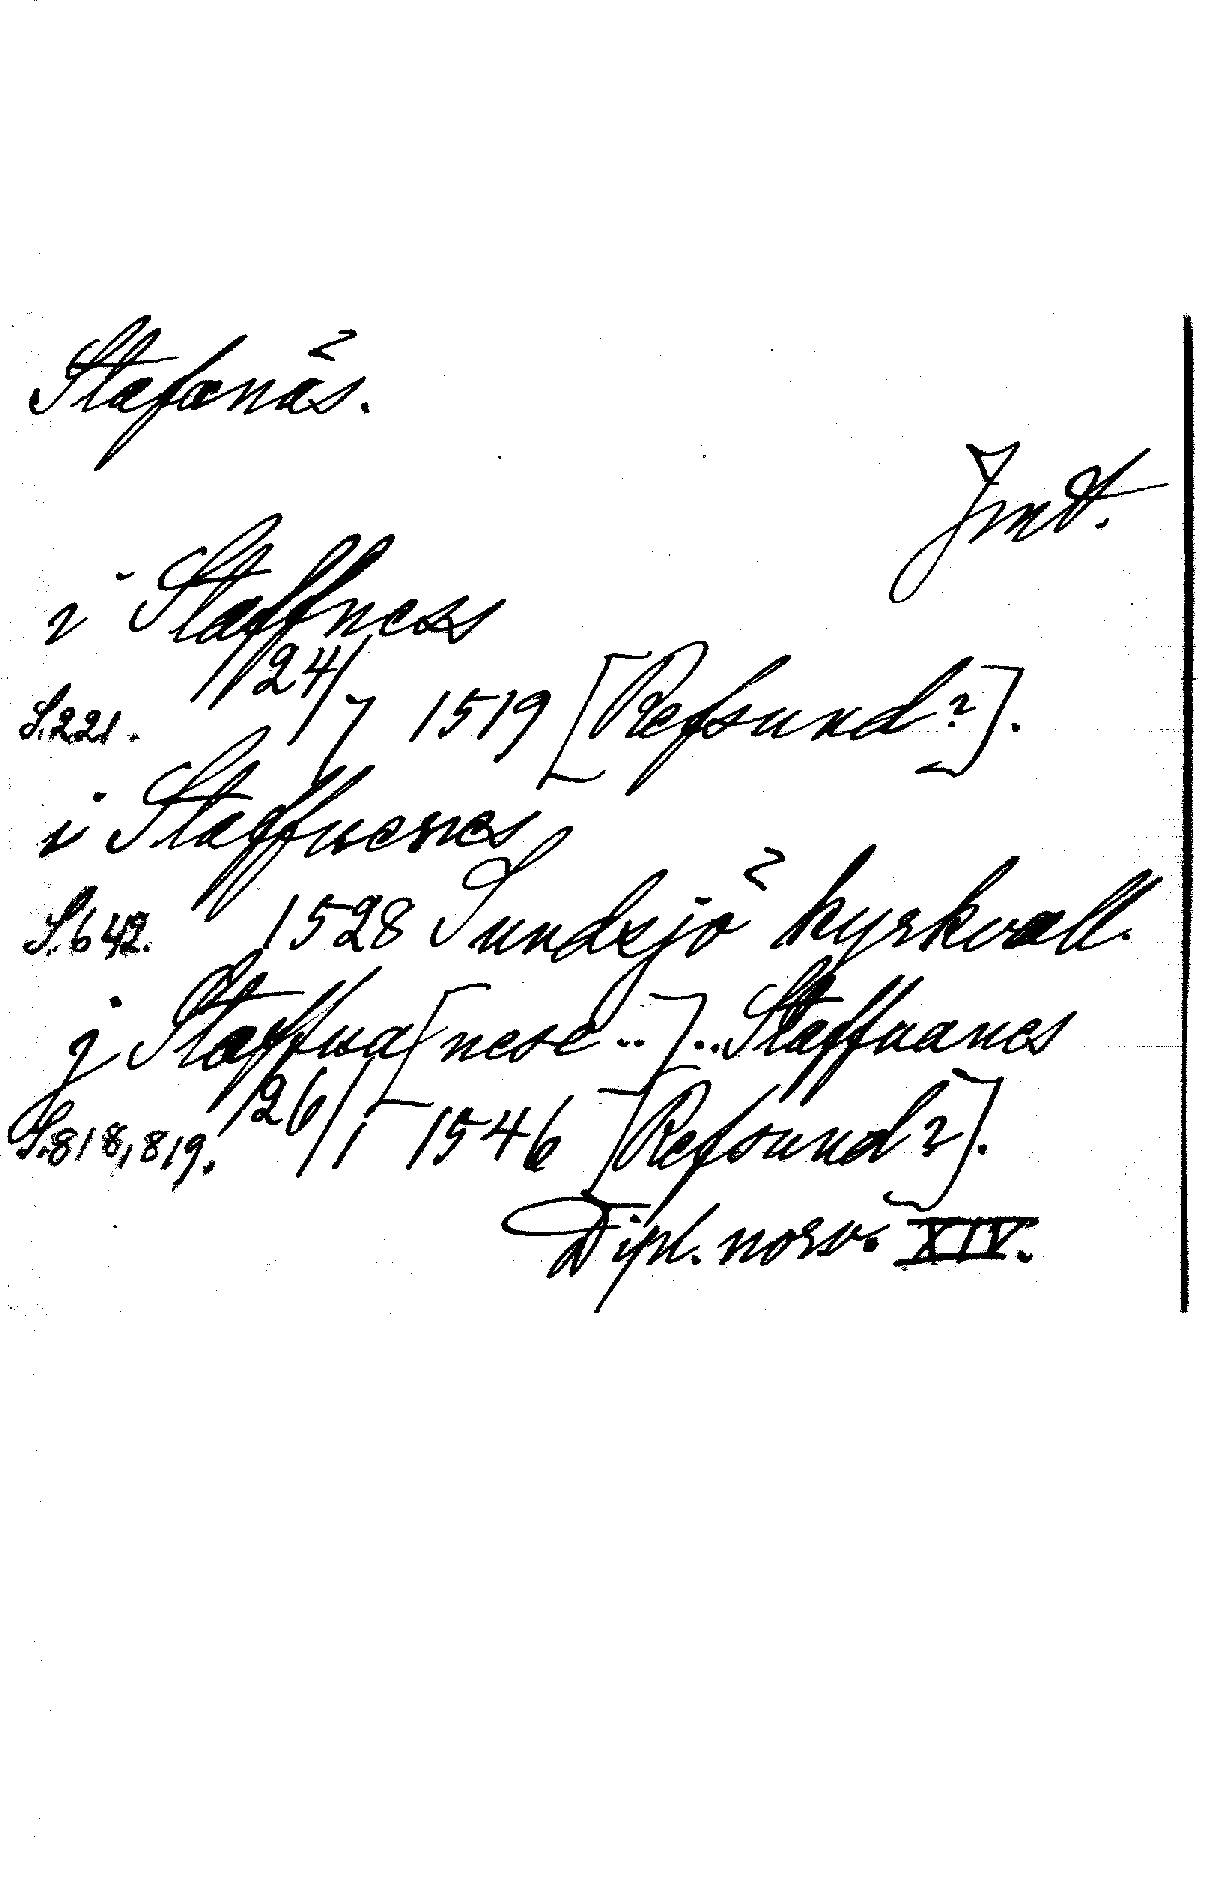 Stafanäs.
Jmt.
i Staffness
S. 221. 24/7 1519 [Refsund?].
i Staffuenes
S. 642. 1528 Sundsjö kyrkvall.
j Staffua[nese..]..Staffuanes
S. 818, 819. 26/1 1546 [Refsund?].
Dipl. norv. XIV.